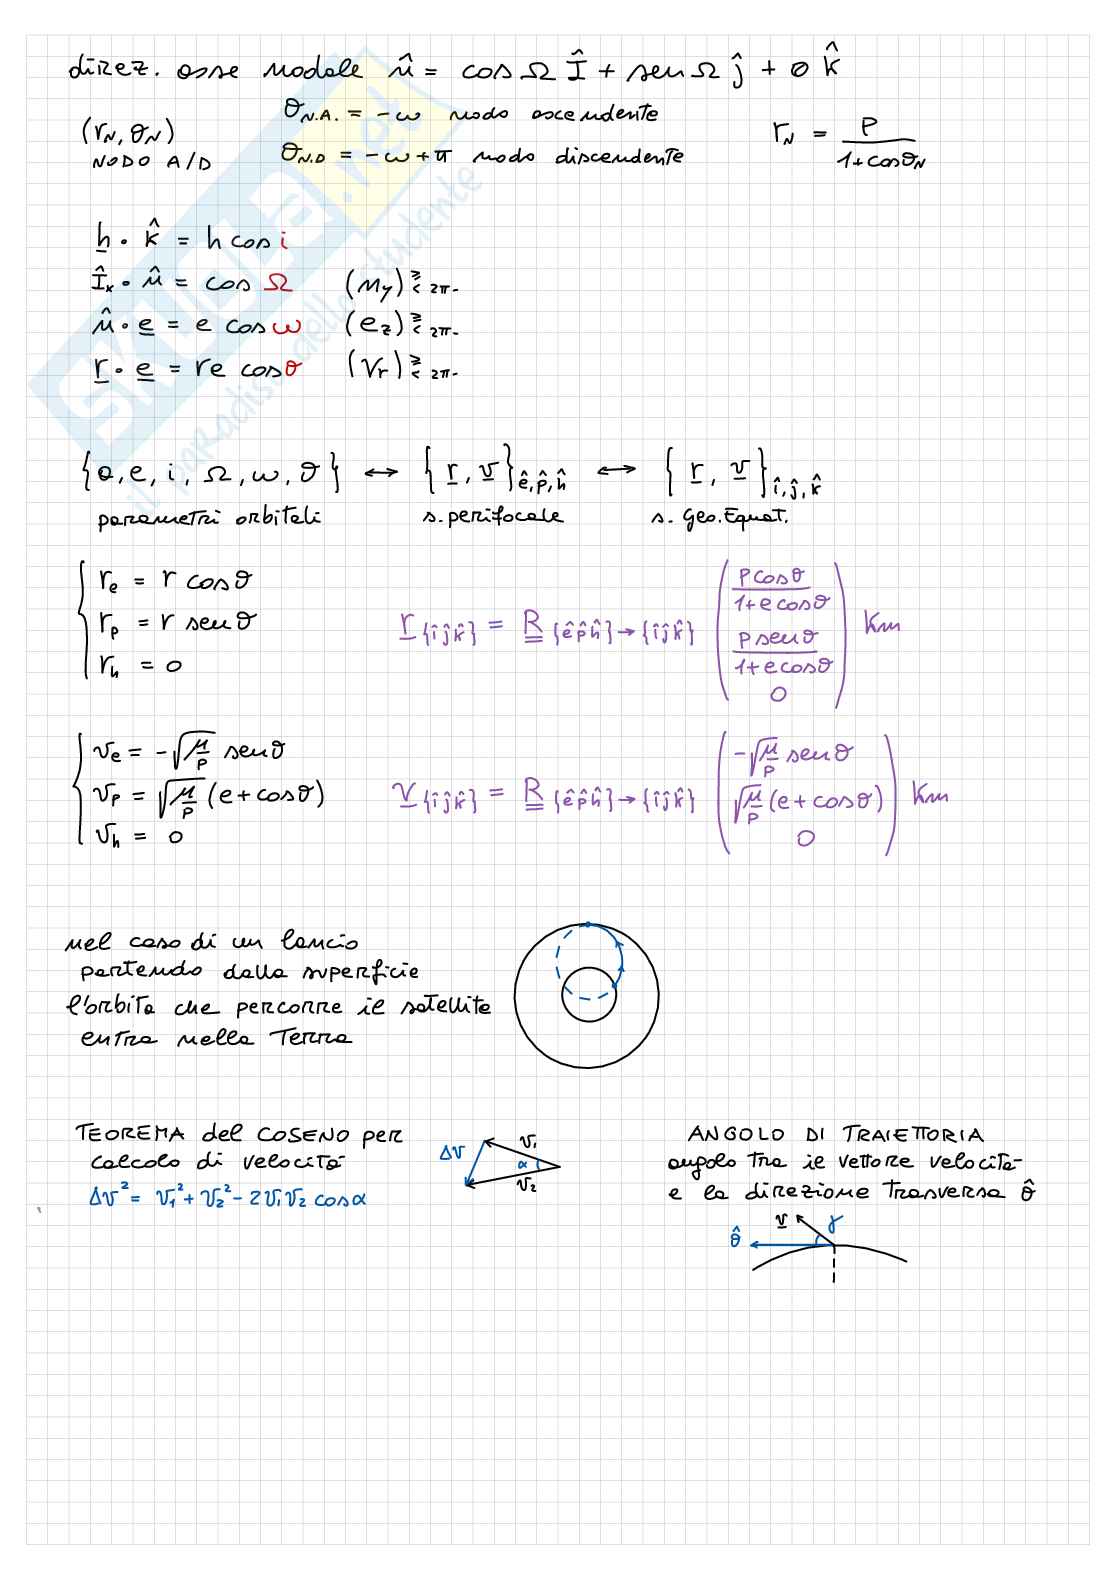 direz. asse nodale n̂ = cos Ω Î + sen Ω ĵ + 0 k̂
(r_N, θ_N) NODO A/D
θ_N.A. = -ω nodo ascendente
θ_N.D = -ω + π nodo discendente
r_N = p / 1+cosθ_N
h · k̂ = h cos i
Î_x · n̂ = cos Ω (n_y) ≷ 2π-
n̂ · e = e cos ω (e_z) ≷ 2π-
r · e = re cos θ (v_r) ≷ 2π-
{a, e, i, Ω, ω, θ} ↔ {r, v}_ê,p̂,ĥ ↔ {r, v}_î,ĵ,k̂
parametri orbitali s. perifocale s. Geo. Equat.
r_e = r cosθ
r_p = r senθ
r_h = 0
r_{î ĵ k̂} = R_{ê p̂ ĥ}→{î ĵ k̂} ( p cosθ / 1+e cosθ
p senθ / 1+e cosθ
0 ) Km
v_e = -√(μ/p) senθ
v_p = √(μ/p) (e + cosθ)
v_h = 0
v_{î ĵ k̂} = R_{ê p̂ ĥ}→{î ĵ k̂} ( -√(μ/p) senθ
√(μ/p) (e + cosθ)
0 ) Km
nel caso di un lancio
partendo dalla superficie
l'orbita che percorre il satellite
entra nella Terra
TEOREMA del COSENO per
calcolo di velocità
Δv² = v₁² + v₂² - 2v₁v₂ cosα
Δv v₁ α v₂
ANGOLO DI TRAIETTORIA
angolo tra il vettore velocità
e la direzione trasversa θ̂
θ̂ v γ
skuola.net
il paradiso dello studente